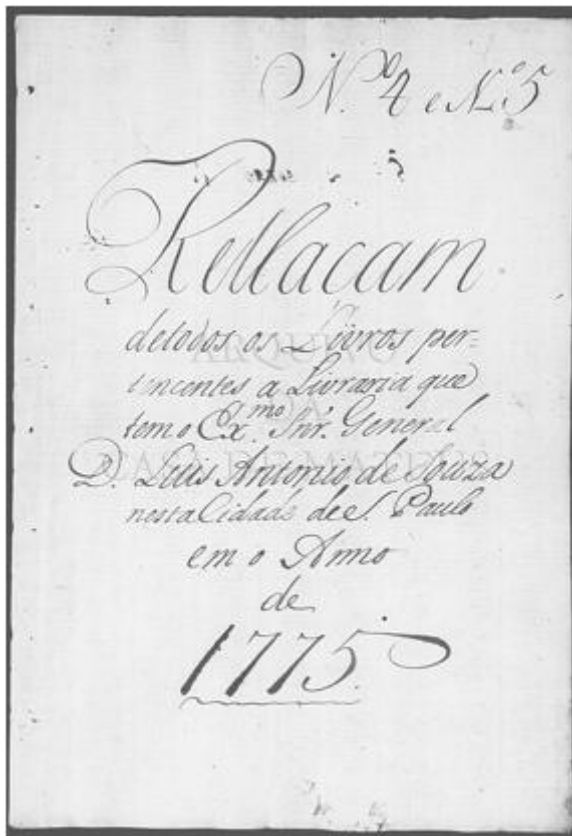 N.º 4 e N.º 5
Rellacam
detodos os Livros per=
tencentes a Livraria que
tem o Ex.mo Snr. General
D. Luis Antonio de Souza
nesta Cidade de S. Paulo
em o Anno
de
1775
ARQUIVO
CASA DE MATEUS